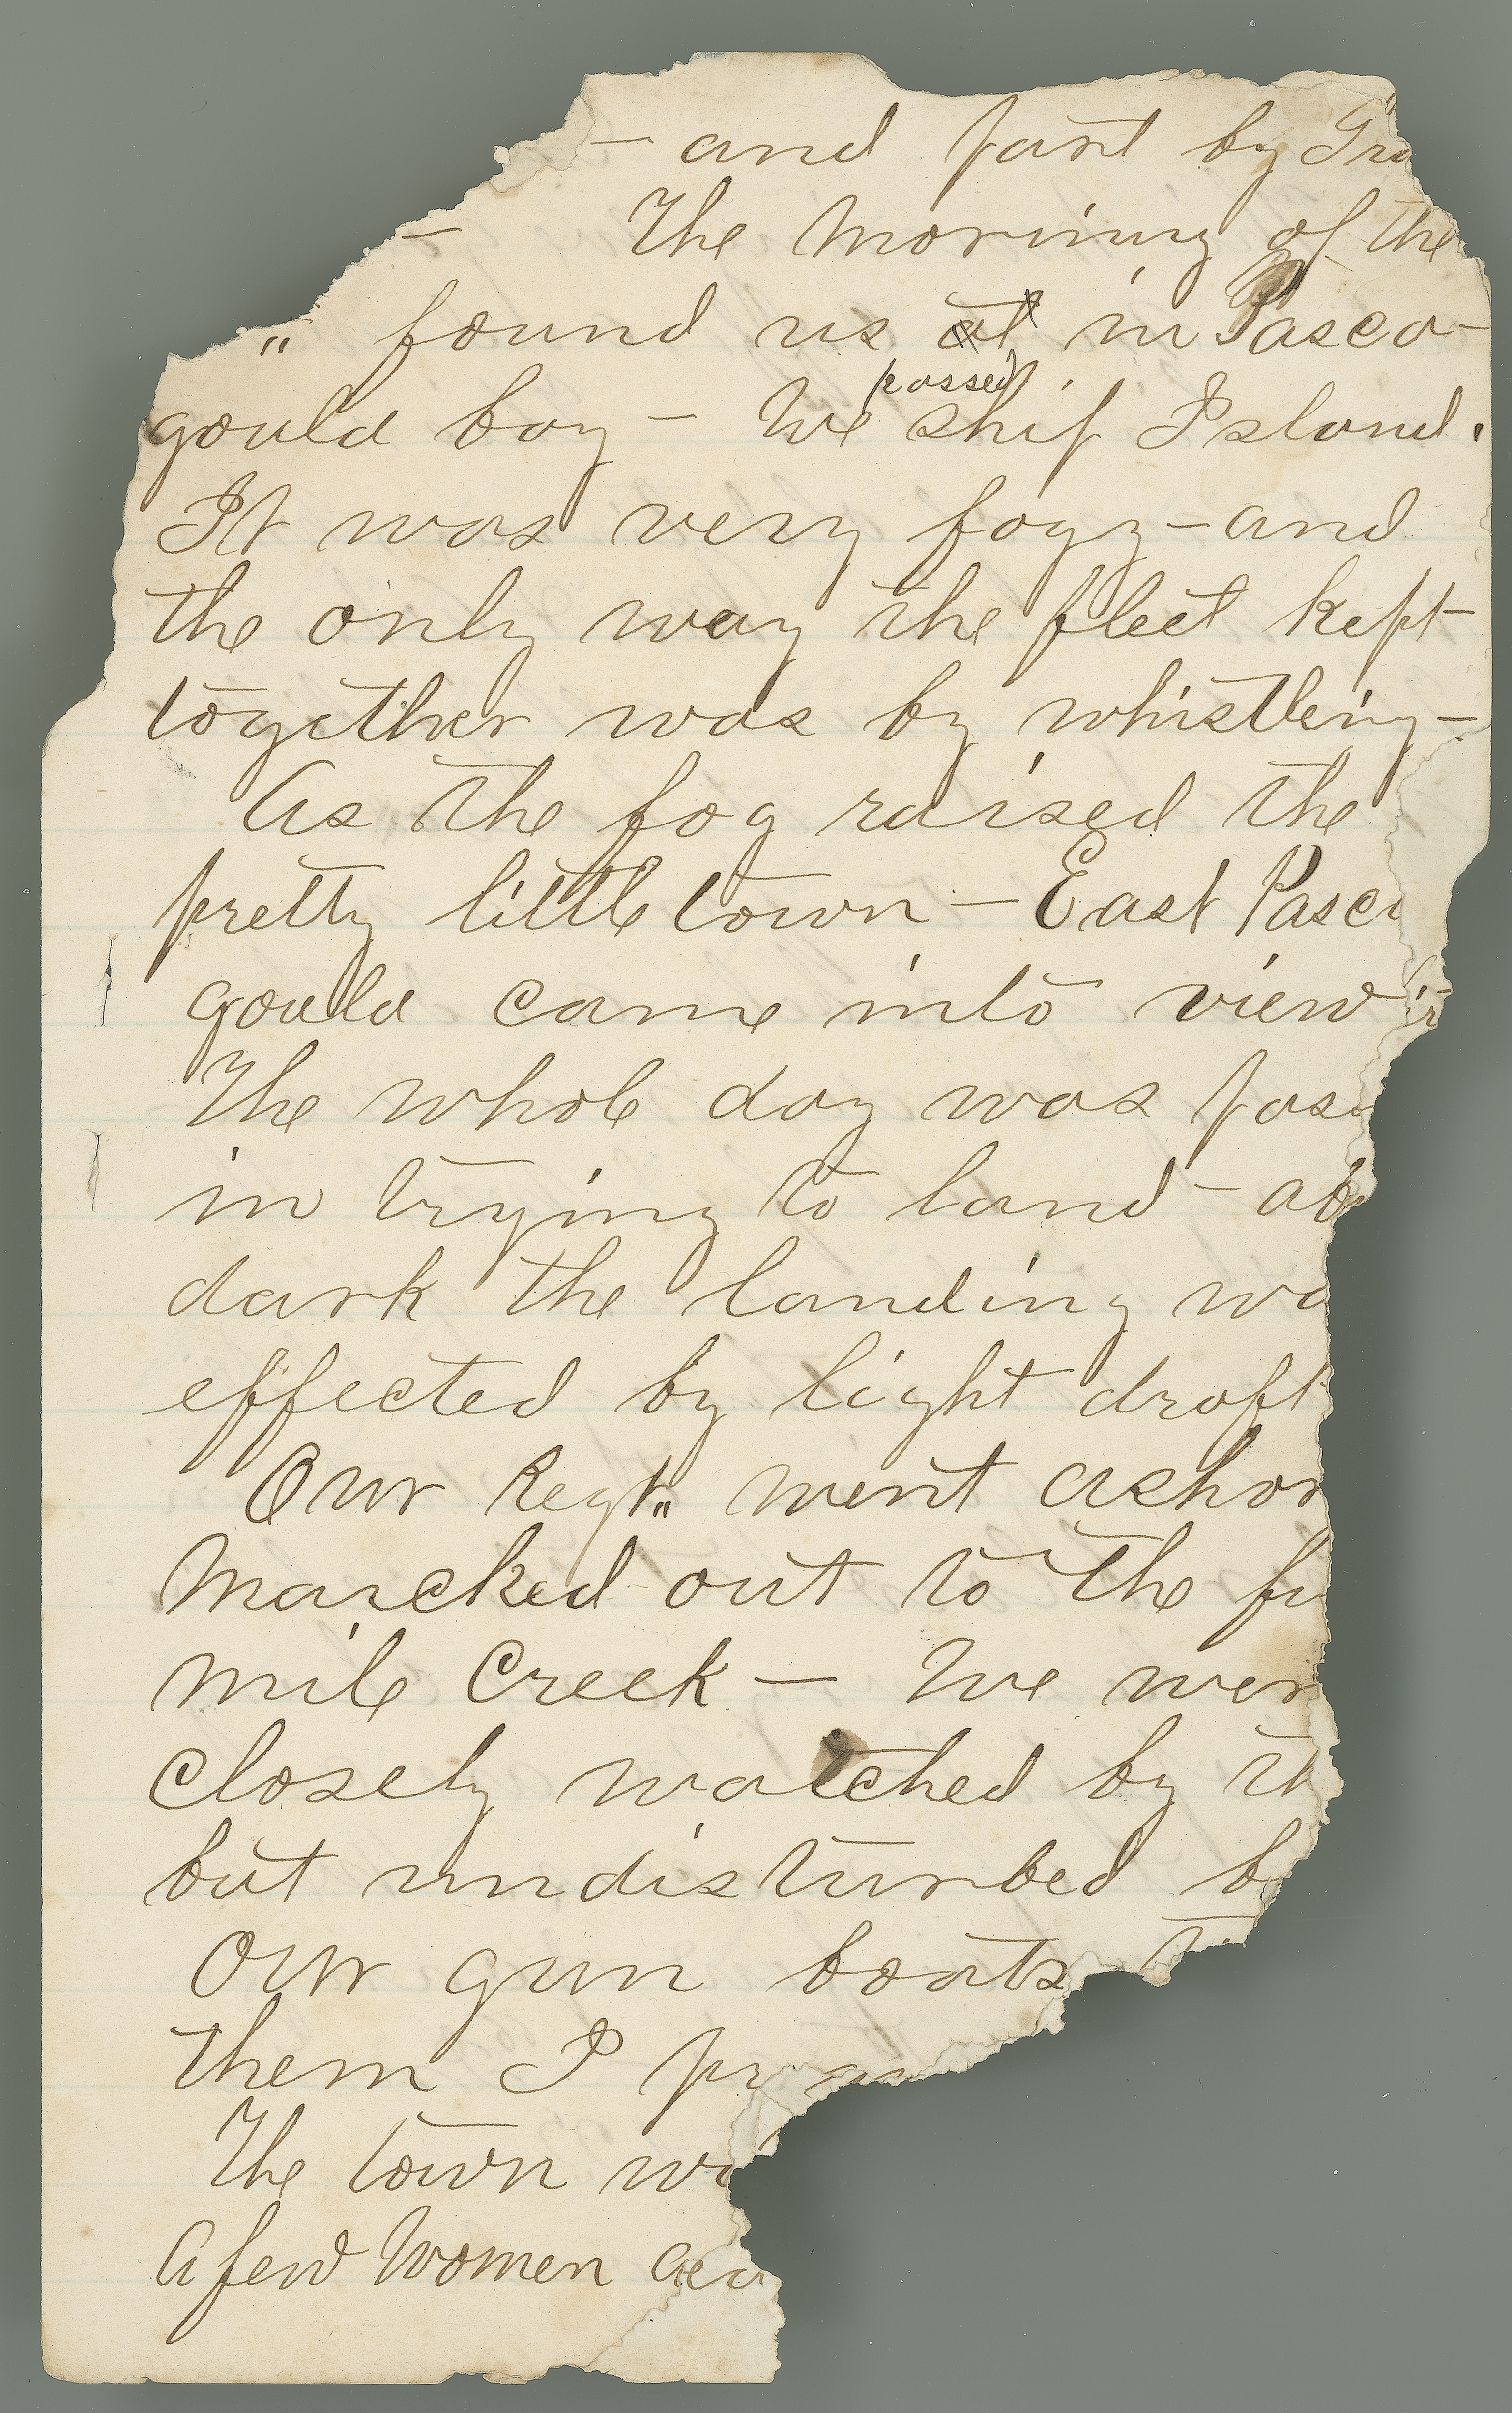 — and part by Gra
— The morning of the
" found us at in Pasca-
gould bay — We passed Ship Island.
It was very fogy — and
the only way the fleet kept
together was by whistling —
As the fog raised the
pretty little town — East Pasca
gould came into view
The whole day was pas
in trying to land — ab
dark the landing wa
effected by light draft
Our Regt. went ashor
Marcked out to the fi
mile Creek — We wer
closely watched by th
but undisturbed b
Our gun boats
them I pr
The town wa
A few Women